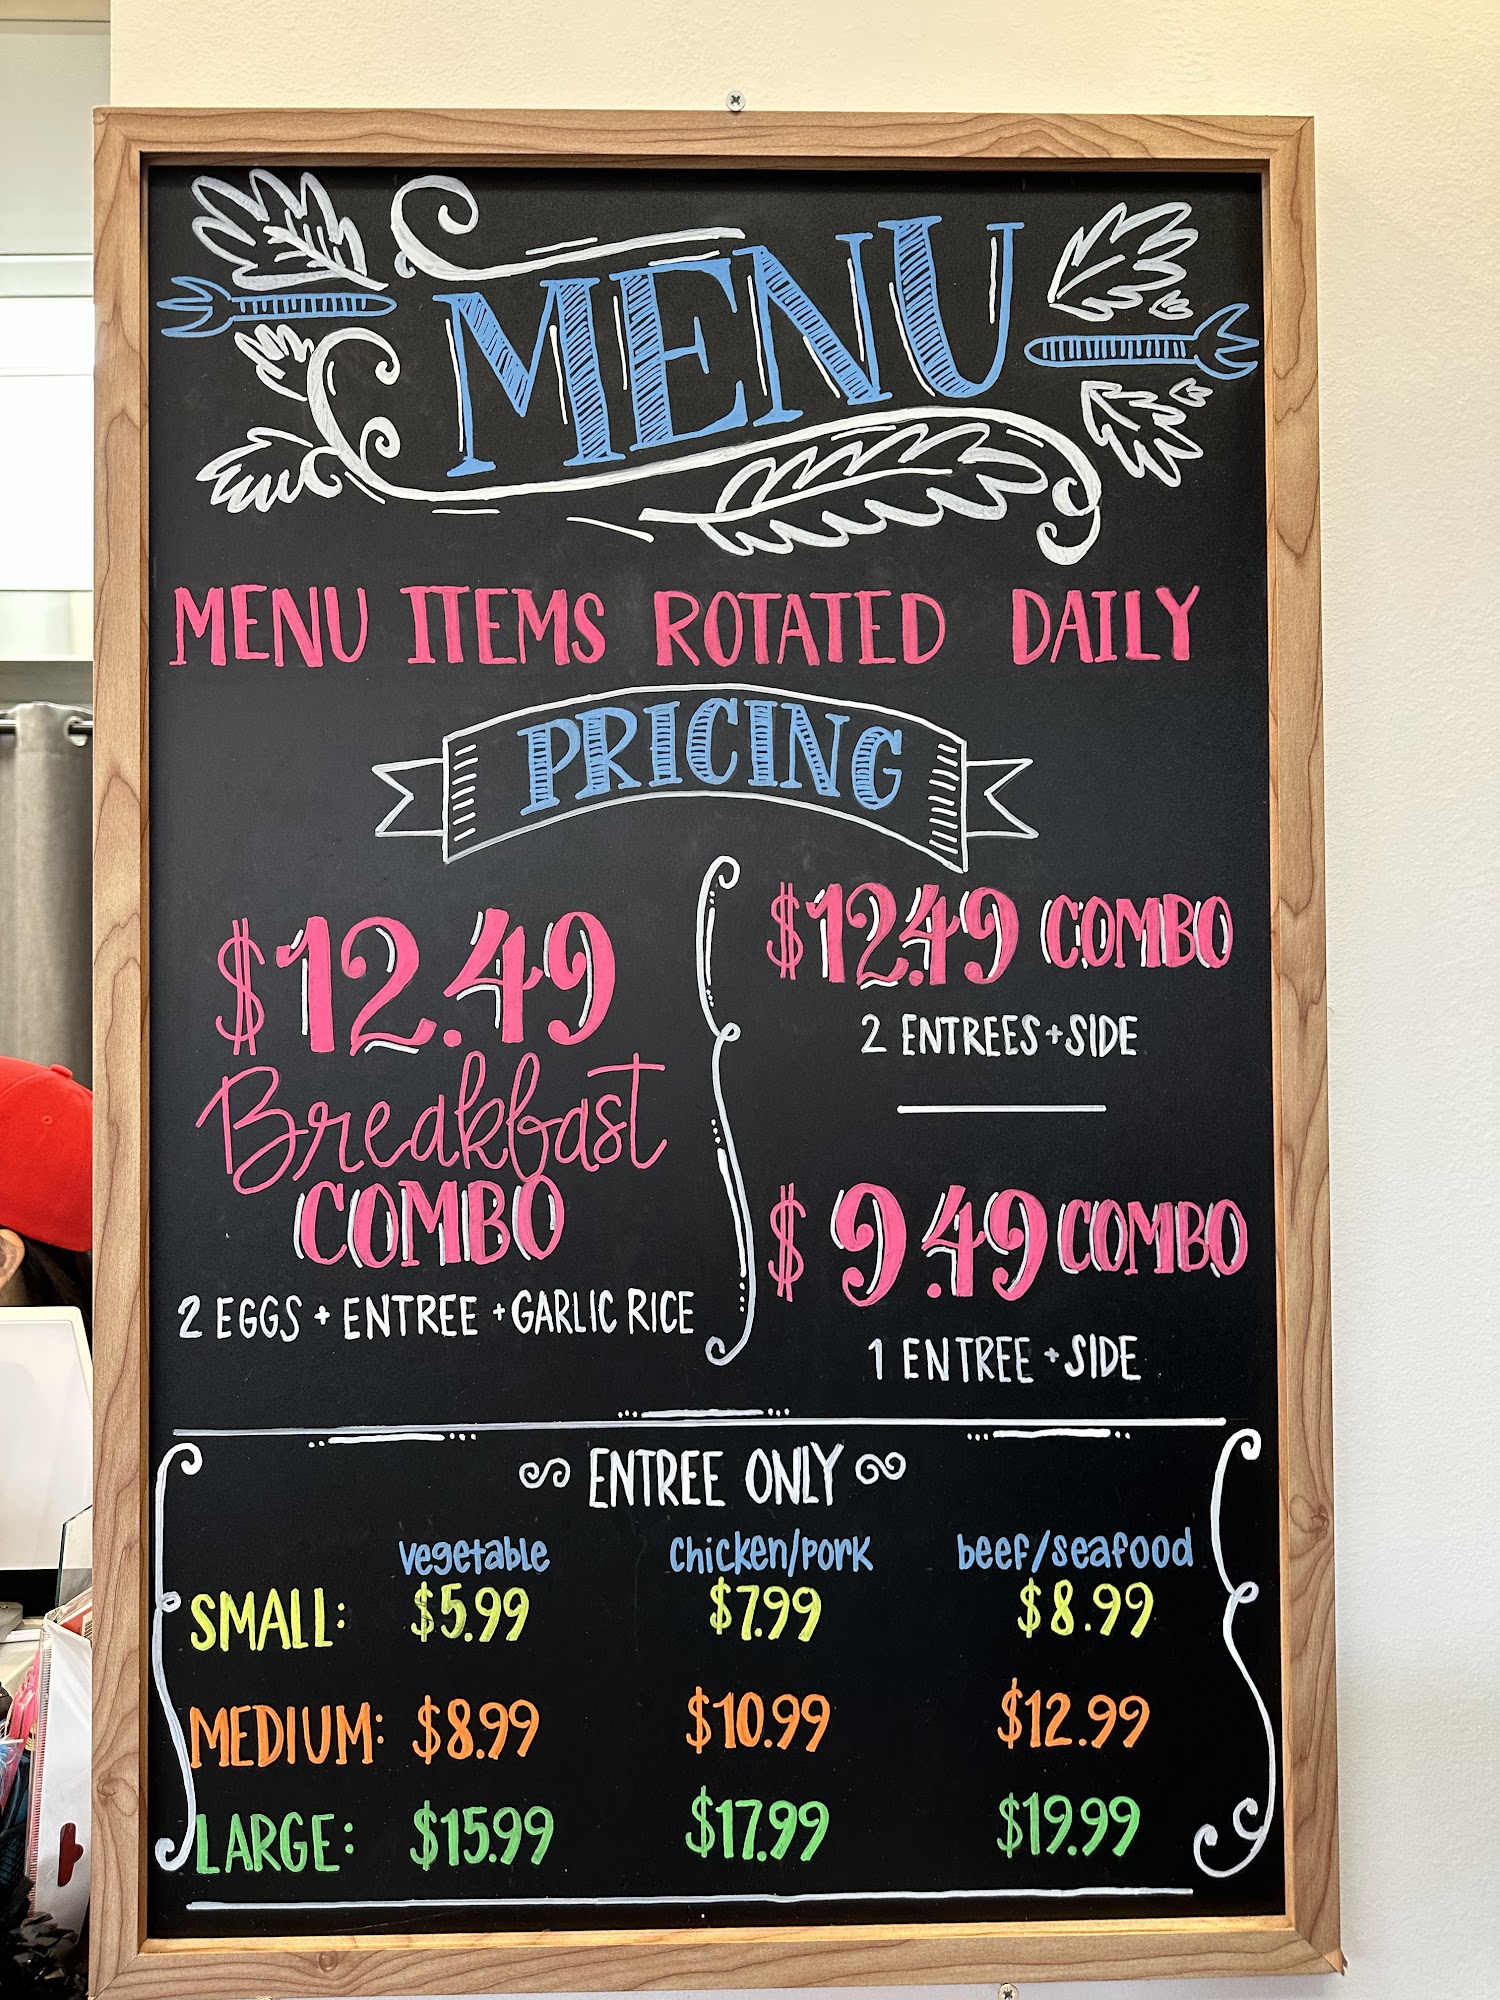 MENU
MENU ITEMS ROTATED DAILY
PRICING
$12.49
Breakfast
COMBO
2 EGGS + ENTREE + GARLIC RICE
$12.49 COMBO
2 ENTREES + SIDE
$9.49 COMBO
1 ENTREE + SIDE
ENTREE ONLY
vegetable chicken/pork beef/seafood
SMALL: $5.99 $7.99 $8.99
MEDIUM: $8.99 $10.99 $12.99
LARGE: $15.99 $17.99 $19.99